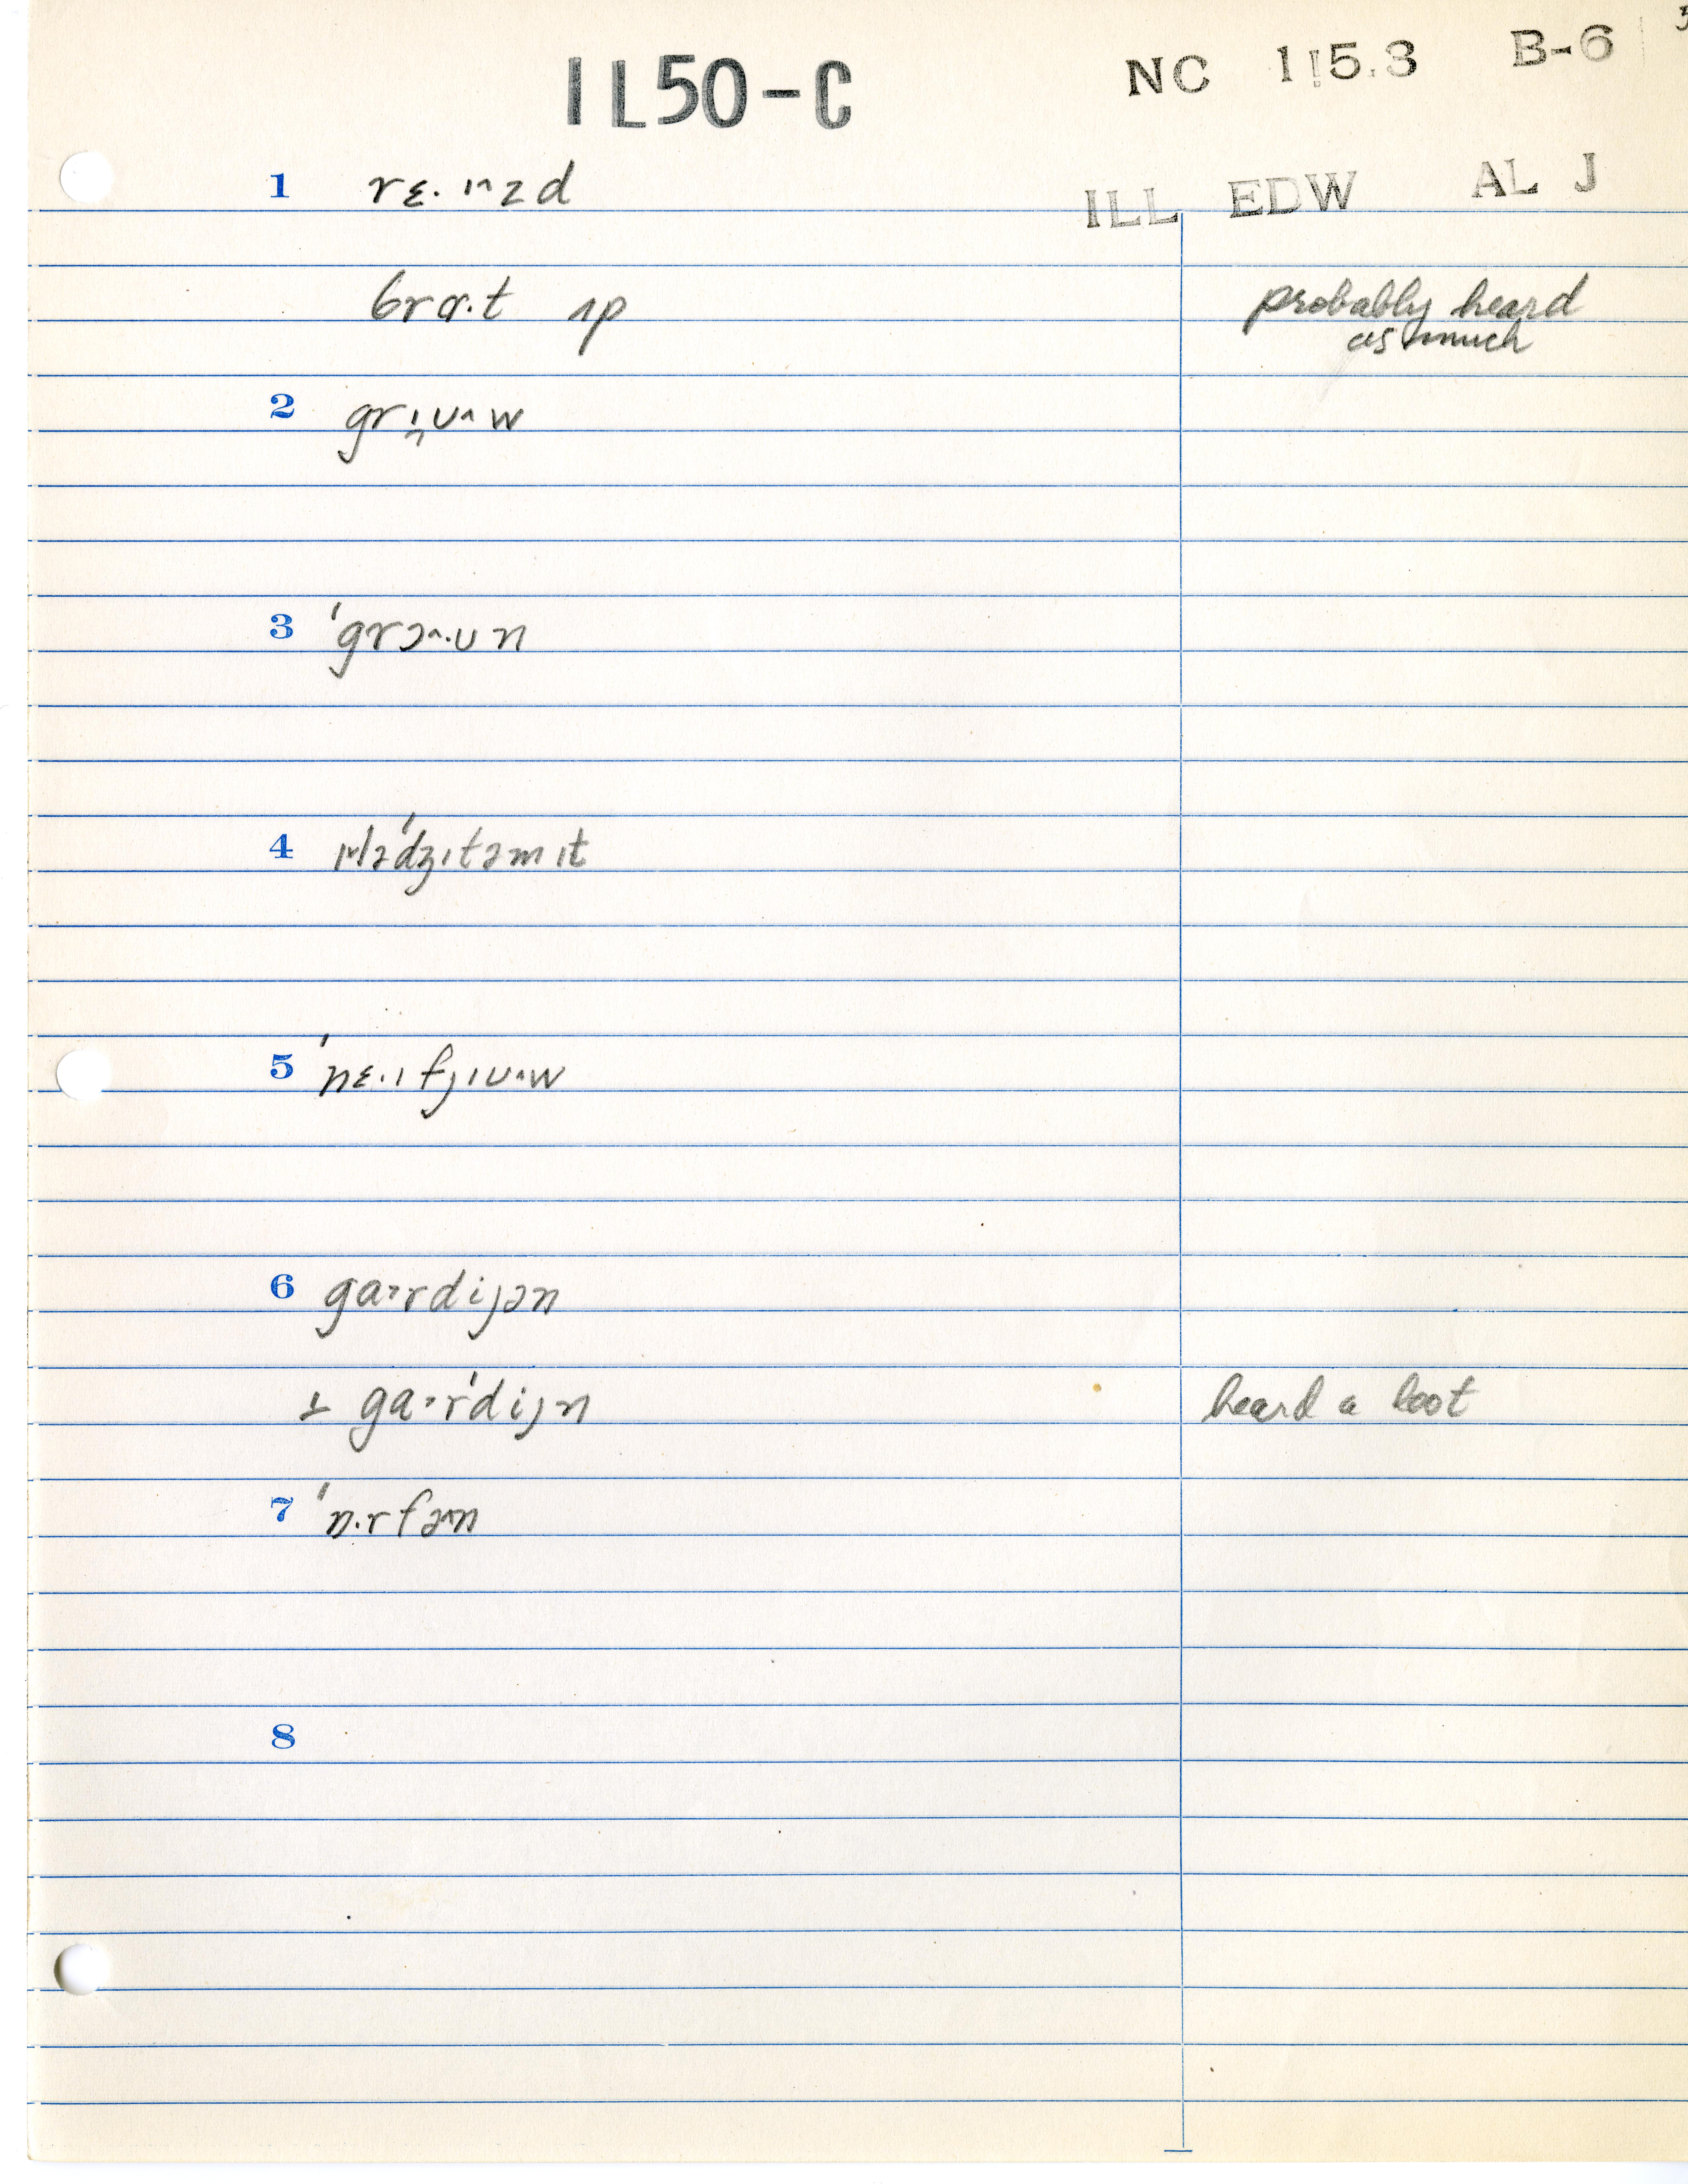 IL50-C
NC 1!5.3 B-6
ILL EDW AL J
1 rɛ·ɪ^zd
brɑ·t ʌp probably heard
as much
2 grɪ̡ʊ^w
3 'grɔ^·ʊn
4 ɪ˅lə'dʒɪtəmɪt
5 'nɛ·ɪfjɪʊ^w
6 ga˃rdijən
⊥ ga·r'dijn heard a loot
7 'n·rfə^n
8